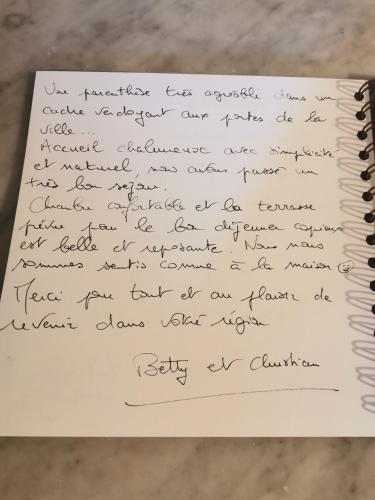 Une parenthèse très agréable dans un
cadre verdoyant aux portes de la
ville...
Accueil chaleureux avec simplicité
et naturel, nous avons passé un
très bon séjour.
Chambre confortable et la terrasse
pour le bon déjeuner copieux
est belle et reposante. Nous nous
sommes sentis comme à la maison ☺
Merci pour tout et au plaisir de
revenir dans votre région.
Betty et Christian